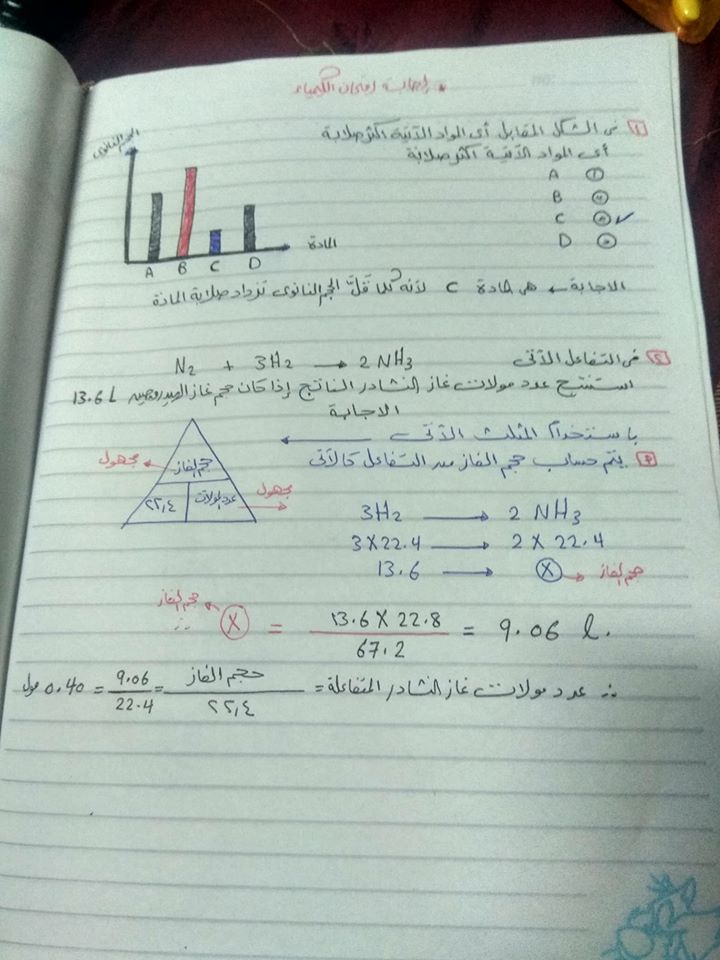 * إجابة امتحان الكيمياء
١ فى الشكل المقابل أى المواد الآتية اكثر صلابة
أى المواد الآتية اكثر صلابة
A
B
C ✓
D
الحجم النانوى
المادة
A B C D
الاجابة ← هى مادة C لأنه كلما قَلَّ الحجم النانوى تزداد صلابة المادة
٢ فى التفاعل الآتى N2 + 3H2 → 2NH3
استنتج عدد مولات غاز النشادر الناتج إذا كان حجم غاز الهيدروجين 13.6 L
الاجابة
باستخدام المثلث الآتى
يتم حساب حجم الغاز من التفاعل كالآتى
مجهول
حجم الغاز
٢٢,٤
عدد المولات
مجهول
3H2 → 2 NH3
3 X 22.4 → 2 X 22.4
13.6 → X → حجم الغاز
حجم الغاز
∴ X = 13.6 X 22.8 / 67.2 = 9.06 l.
∴ عدد مولات غاز النشادر المتفاعلة = حجم الغاز / ٢٢,٤ = 9.06 / 22.4 = 0.40 مول